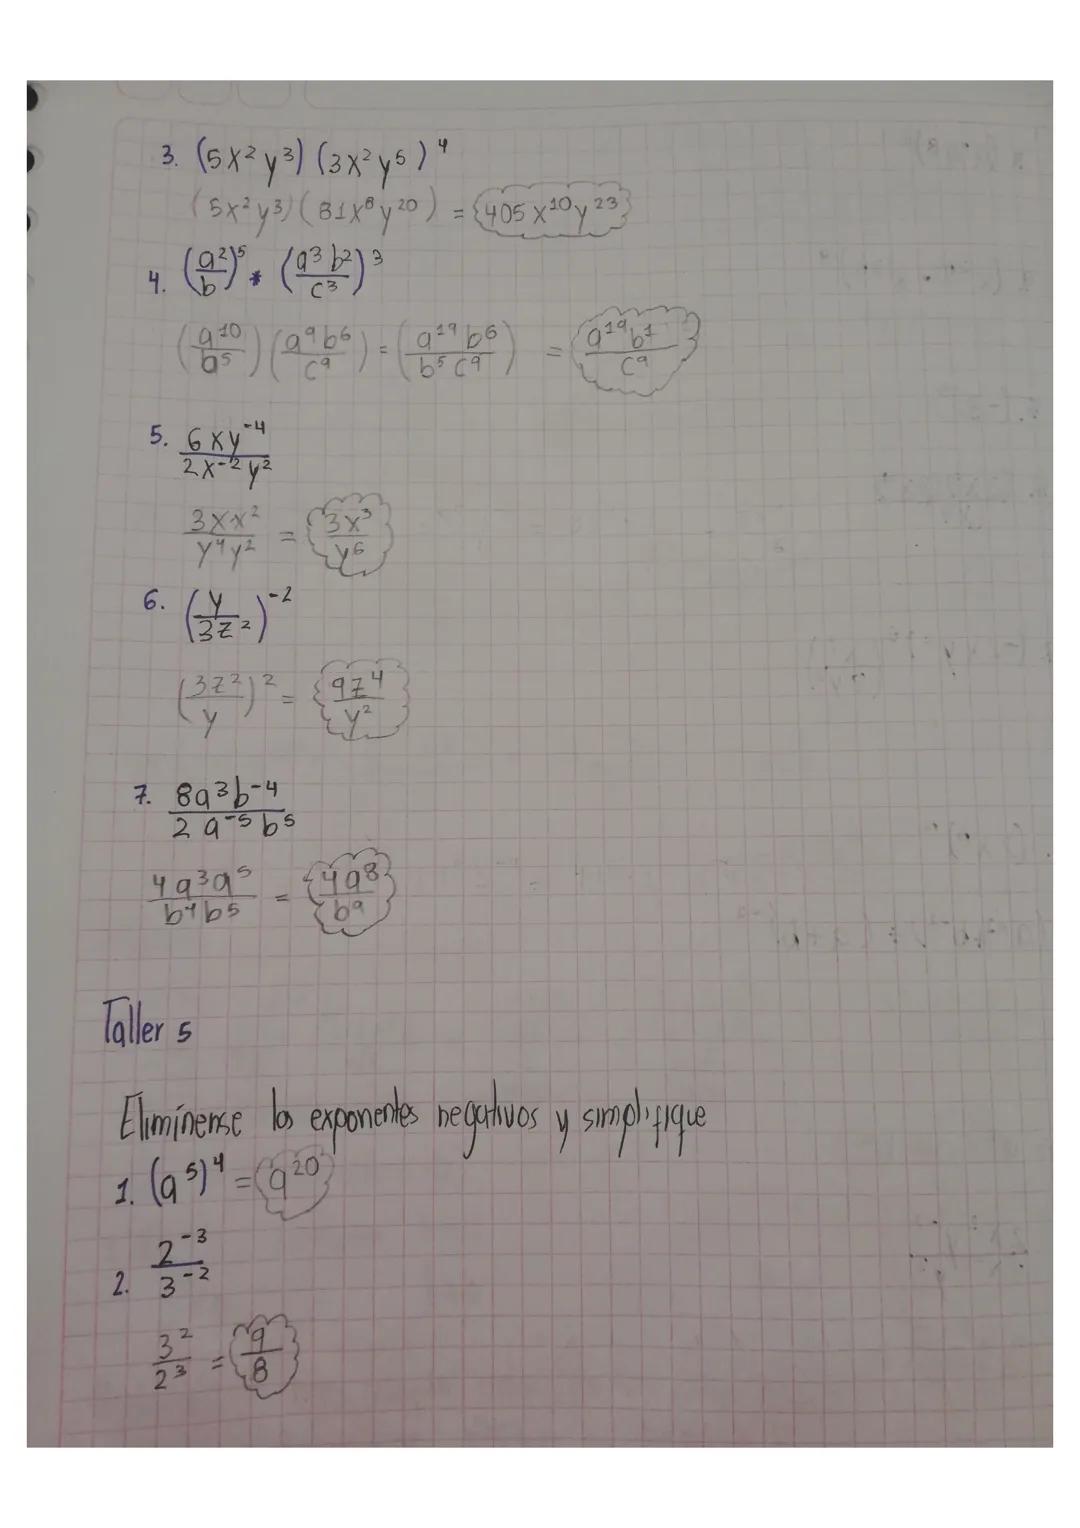 3. (5x² y³) (3x² y⁵)⁴
(5x² y³) (81x⁸ y²⁰) = 405 x¹⁰ y²³
4. (a²/b)⁵ * (a³ b²/c³)³
(a¹⁰/b⁵) (a⁹ b⁶/c⁹) = (a¹⁹ b⁶/b⁵ c⁹) = a¹⁹ b¹/c⁹
5. 6xy⁻⁴/2x⁻² y²
3x·x²/y⁴ y² = 3x³/y⁶
6. (y/3z²)⁻²
(3z²/y)² = 9z⁴/y²
7. 8a³b⁻⁴/2a⁻⁵b⁵
4a³a⁵/b⁴b⁵ = 4a⁸/b⁹
Taller 5
Elimínense los exponentes negativos y simplifique
1. (a⁵)⁴ = a²⁰
2. 2⁻³/3⁻²
3²/2³ = 9/8